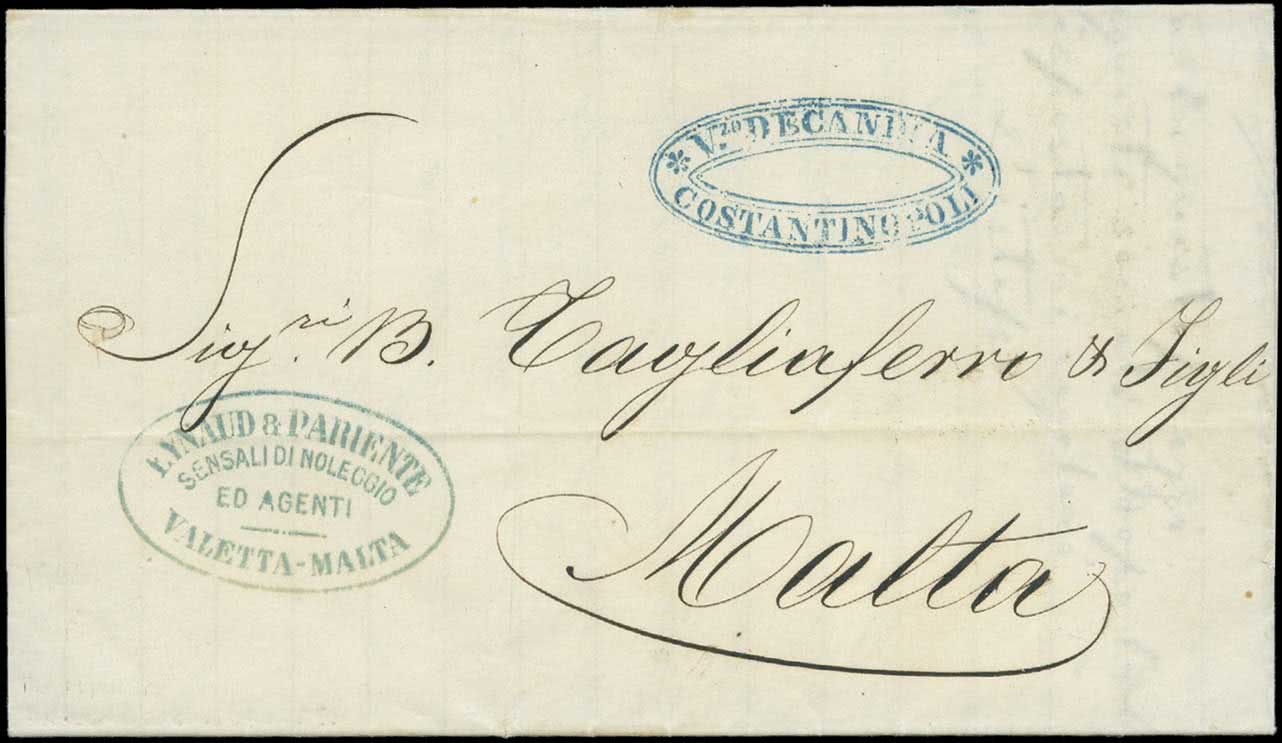 V.zo DECANDIA
COSTANTINOPOLI
Sigri. B. Tagliaferro & Figli
EYNAUD & PARIENTE
SENSALI DI NOLEGGIO
ED AGENTI
VALETTA-MALTA
Malta